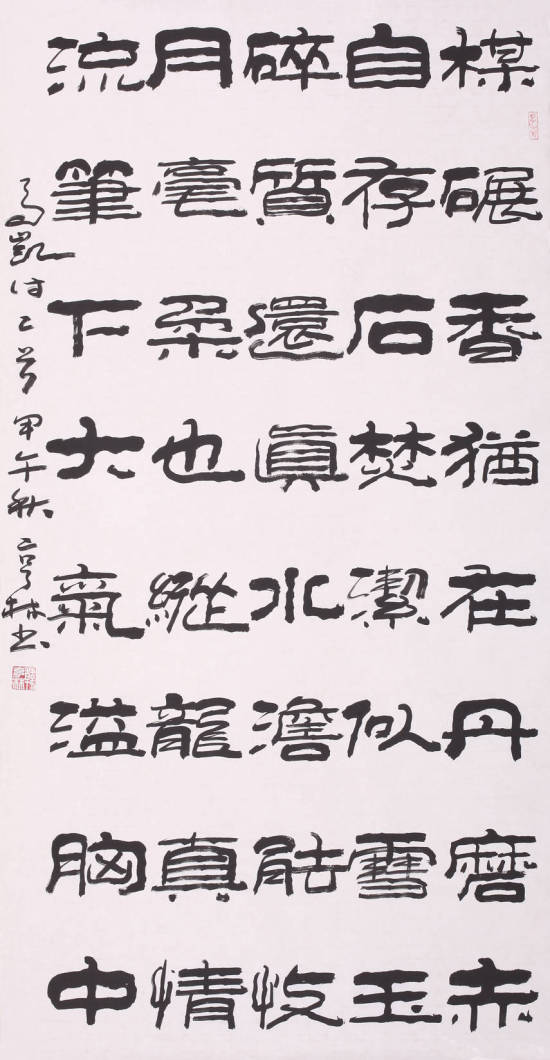 楳碾香猶在丹磨赤
自存石焚潔似雪玉
碎質還眞水澹能收
月毫柔也縱龍真情
流筆下大氣溢胸中
高凱詩二首 甲午秋 亨林書